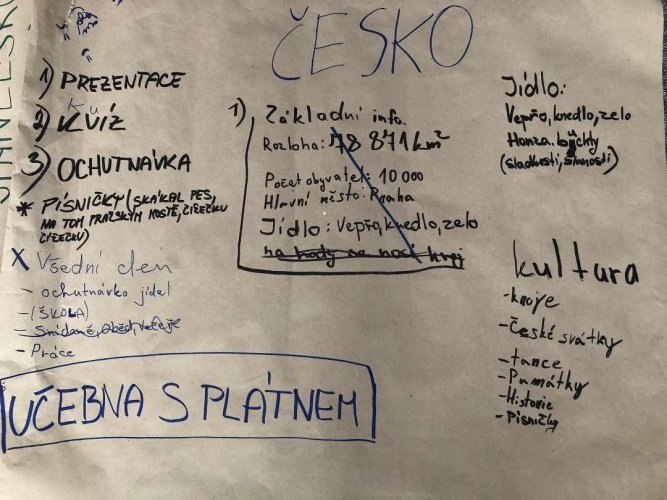 ČESKO
1) PREZENTACE
2) KVÍZ
3) OCHUTNÁVKA
* PÍSNIČKY (SKÁKAL PES,
NA TOM PRAŽSKYM MOSTĚ, ČIŽEČKU
ČIŽEČKU)
X Všední den
- ochutnávka jídel
- (ŠKOLA)
- Snídaně, Oběd, Večeře
- Práce
UČEBNA S PLÁTNEM
1) Základní info.
Rozloha: 78 871 km²
Počet obyvatel: 10 000
Hlavní město: Praha
Jídlo: Vepřo, knedlo, zelo
Jídlo:
Vepřo, knedlo, zelo
Honza. buchty
(sladkosti, slanosti)
kultura
- kroje
- České svátky
- tance
- Památky
- Historie
- Písničky